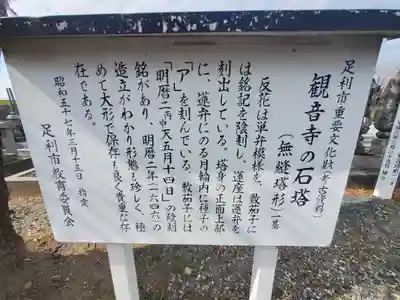 足利市重要文化財(考古資料)
観音寺の石塔
(無縫塔形)一基
反花は単弁模様を、敷茄子に
は銘記を陰刻し、蓮座は蓮弁を
刻出している。塔身の正面上部
に、蓮弁にのる月輪内に種子の
「ア」を刻んでいる。敷茄子には
「明暦二丙天五月十四日」の陰刻
銘があり、明暦二年(一六四六)の
造立がわかり形態も珍しく、極
めて大形で保存も良く貴重な存
在である。
昭和五十七年三月十五日 指定
足利市教育委員会